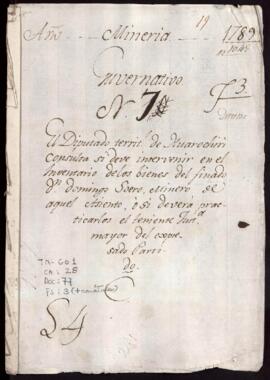 19
Año Mineria 1789
Guvernativo
N 7
3
El Diputado territl. de Huarochiri
Consulta si deve intervenir en el
Inventario de los bienes del finado
Dn. Domingo Sotro, Minero de
aquel Asiento, o si devera prac-
ticarlos el teniente
mayor del expre-
sado Parti-
do.
TM-GO1
CA: 28
DOC: 77
L4